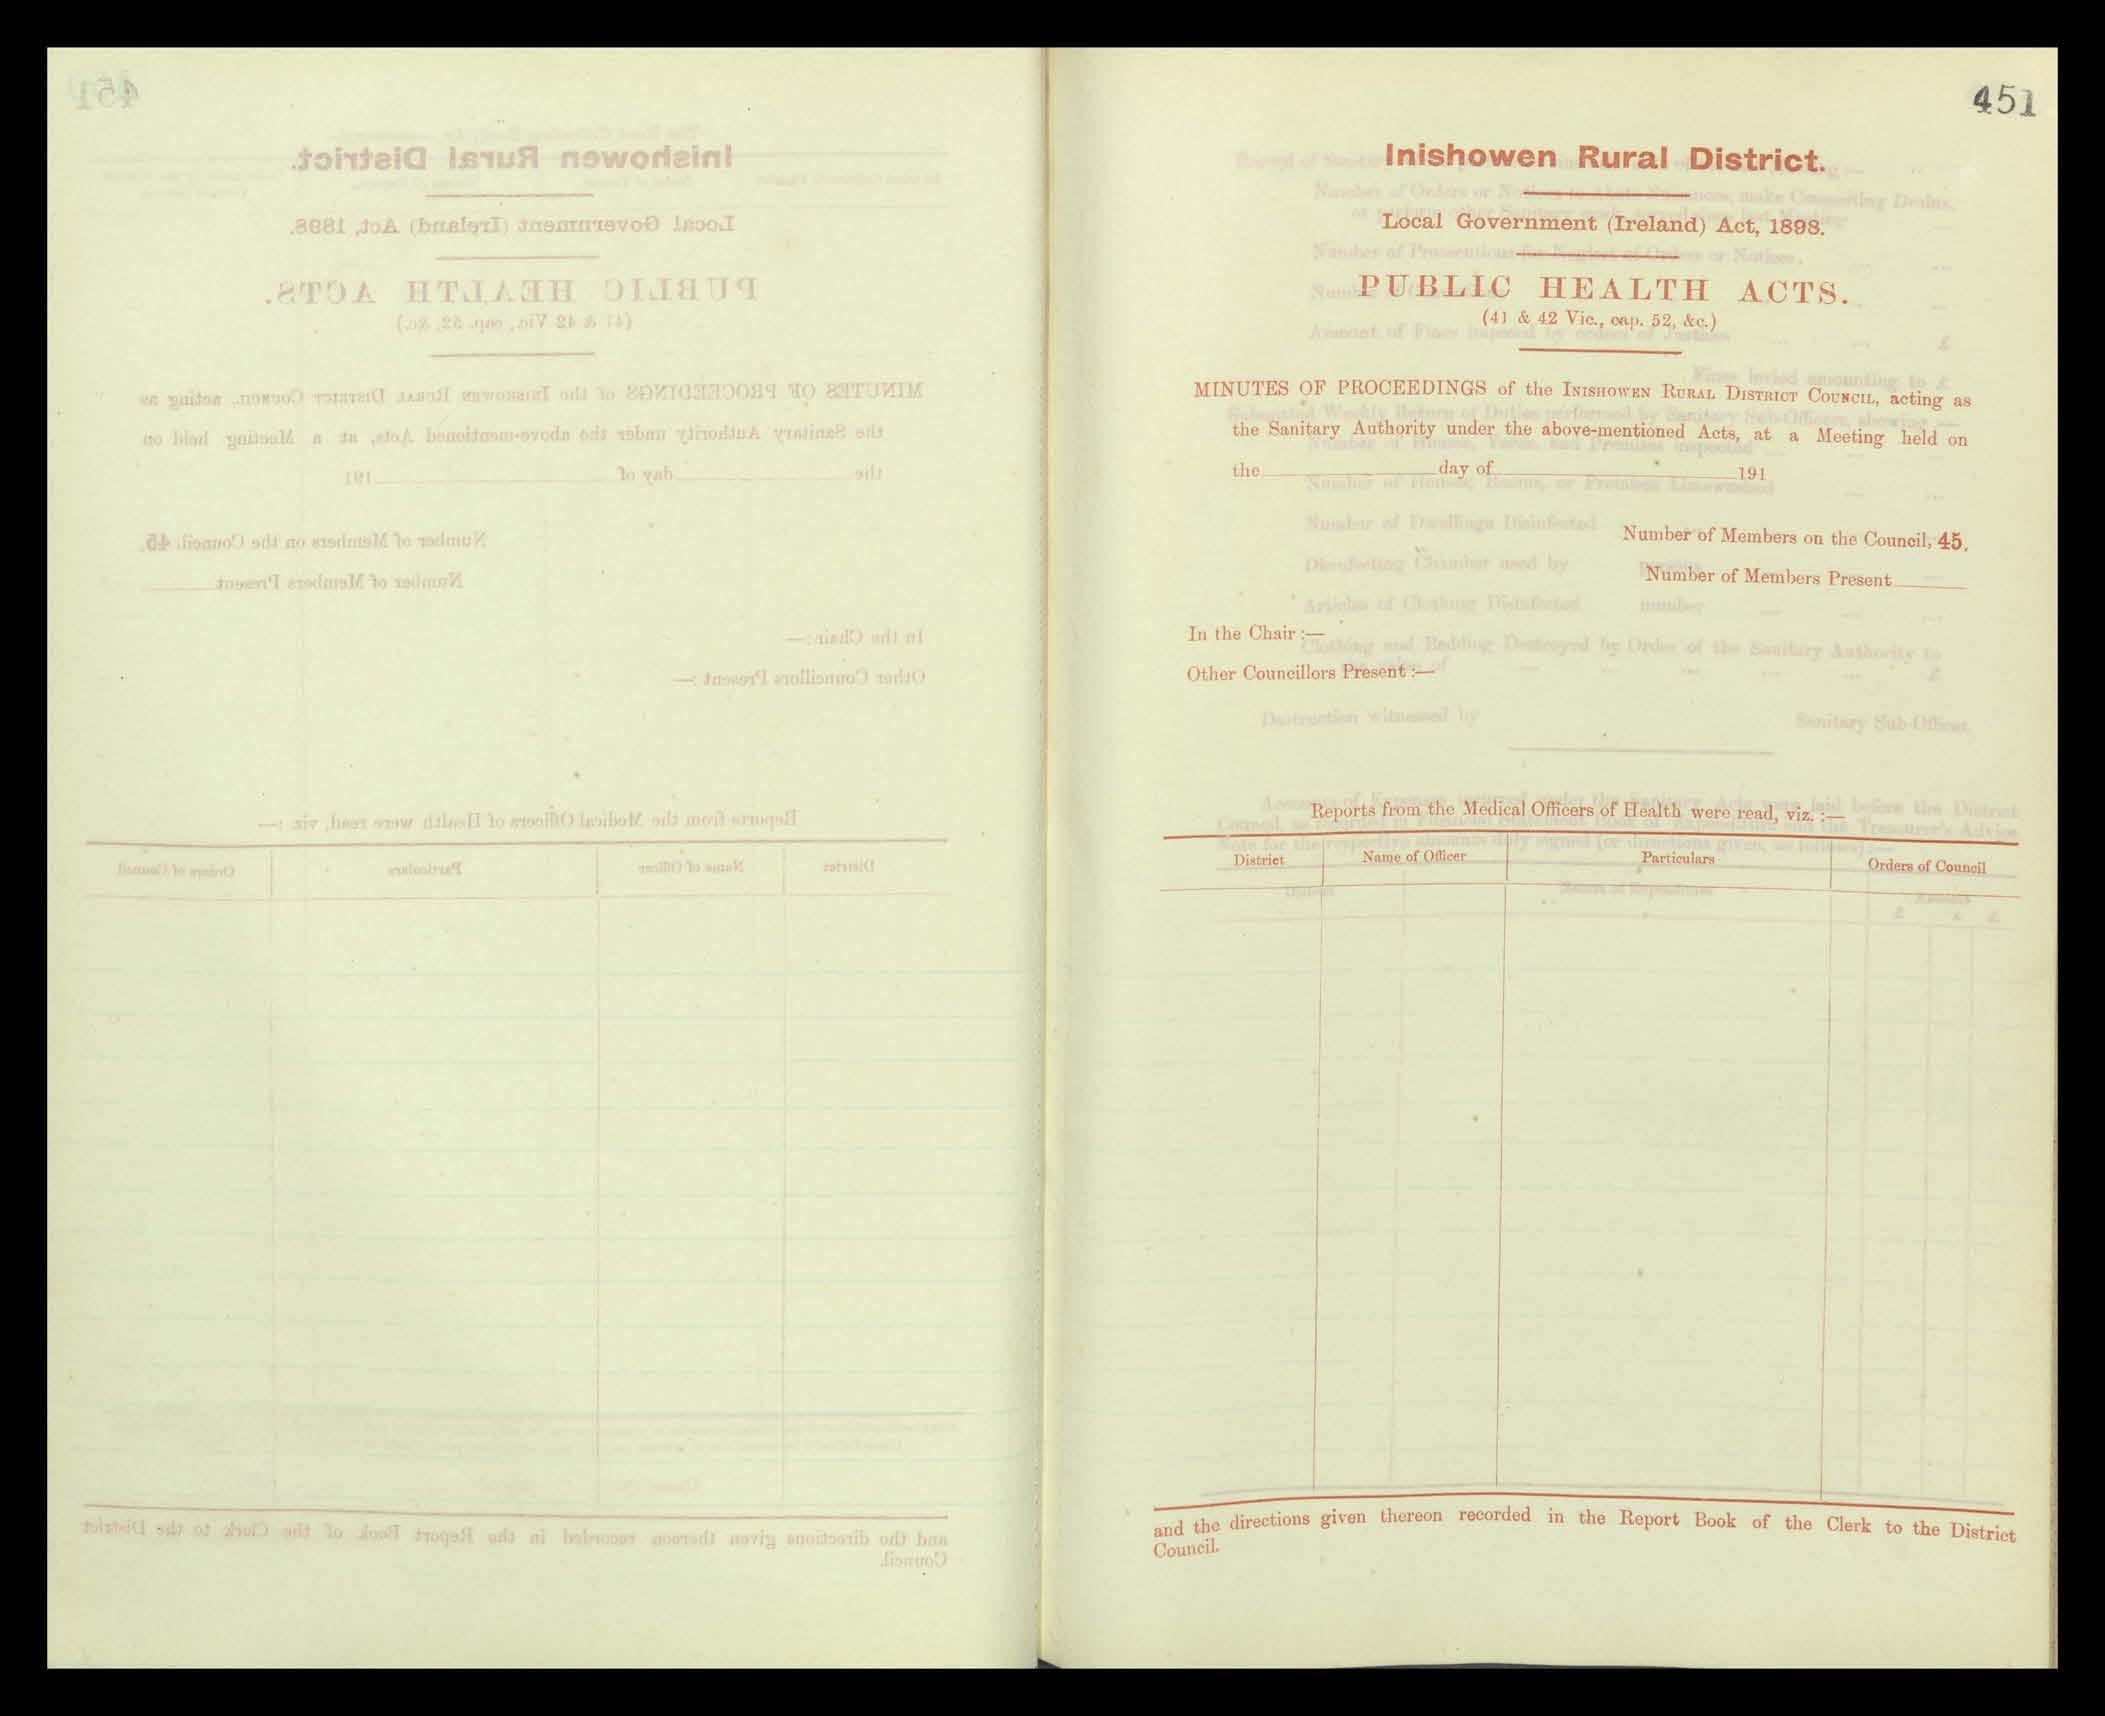 451
Inishowen Rural District.
Local Government (Ireland) Act, 1898.
PUBLIC HEALTH ACTS.
(41 & 42 Vic., cap. 52, &c.)
MINUTES OF PROCEEDINGS of the INISHOWEN RURAL DISTRICT COUNCIL, acting as
the Sanitary Authority under the above-mentioned Acts, at a Meeting held on
the day of 191
Number of Members on the Council, 45.
Number of Members Present
In the Chair :—
Other Councillors Present :—
Reports from the Medical Officers of Health were read, viz. :—
District Name of Officer Particulars Orders of Council
and the directions given thereon recorded in the Report Book of the Clerk to the District
Council.